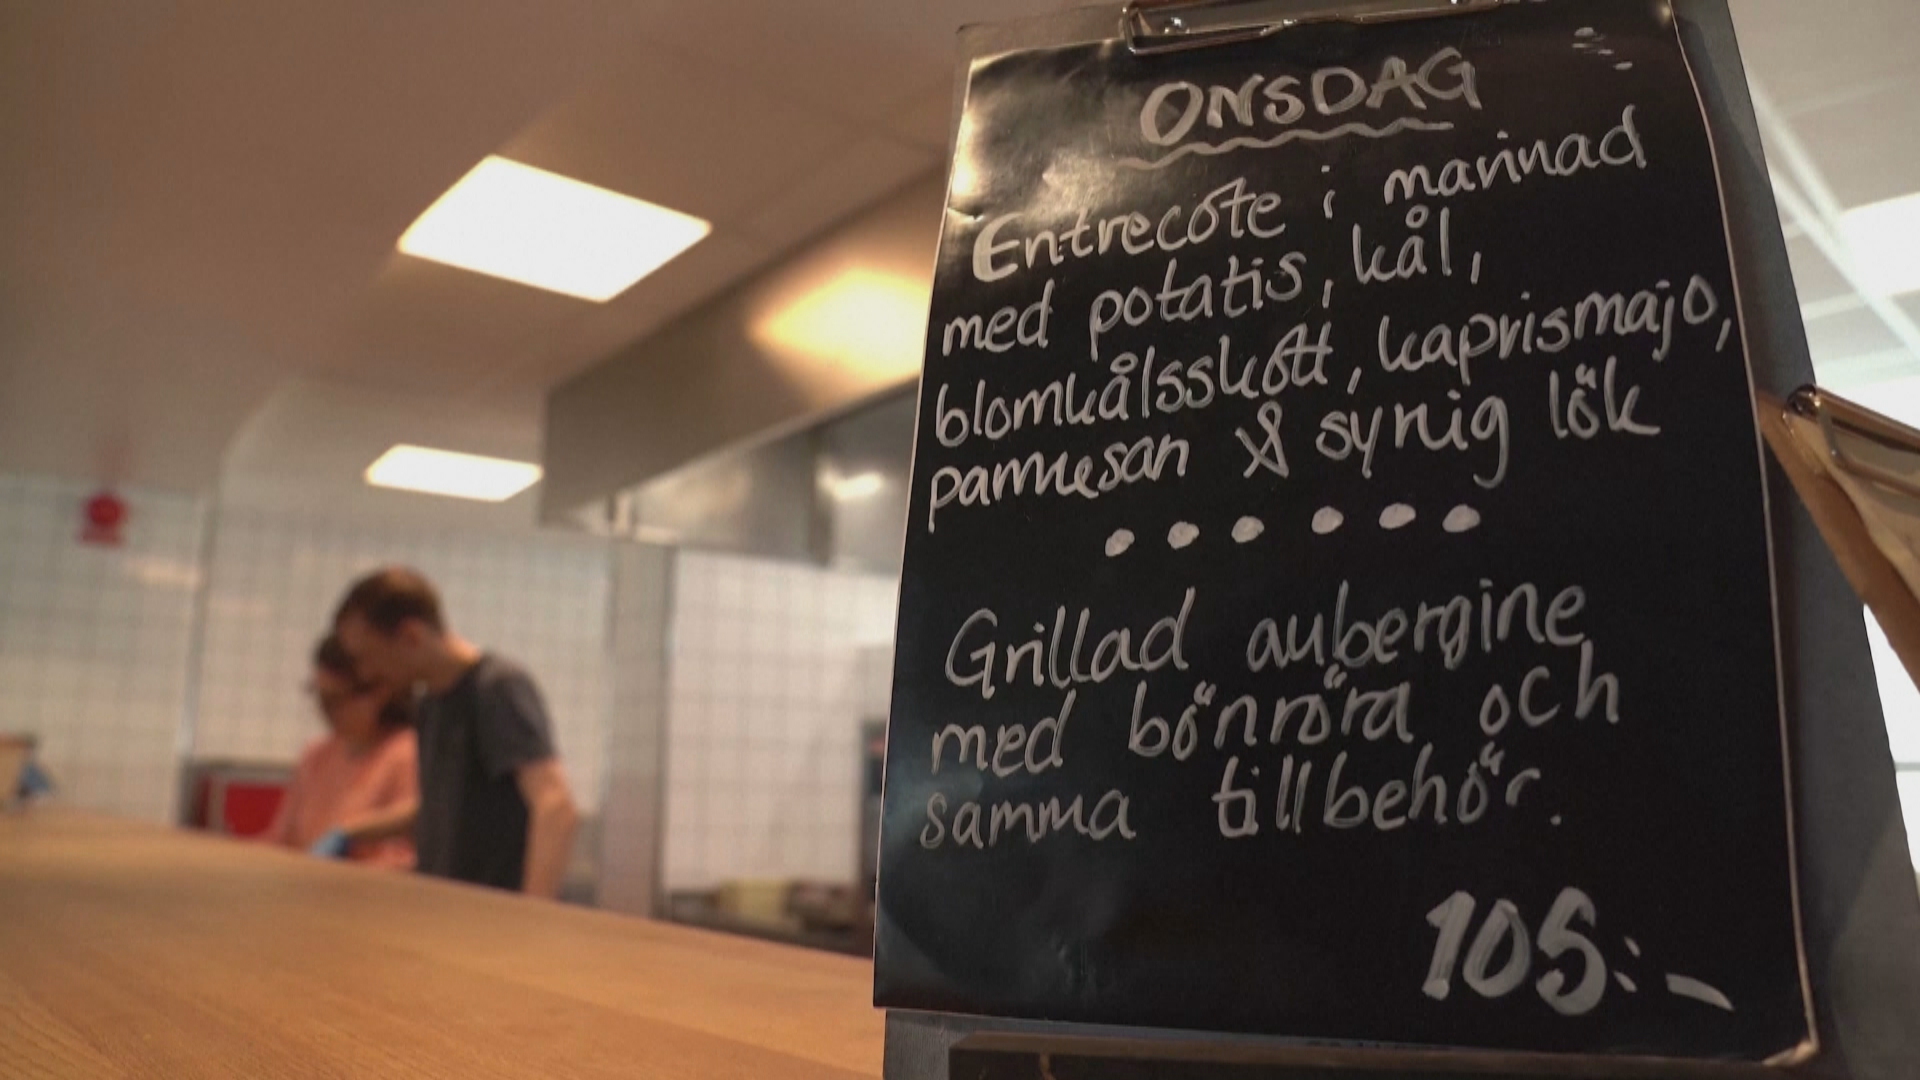 ONSDAG
Entrecôte i marinad
med potatis, kål,
blomkålsskott, kaprismajo,
parmesan & syrlig lök
Grillad aubergine
med bönröra och
samma tillbehör.
105:-